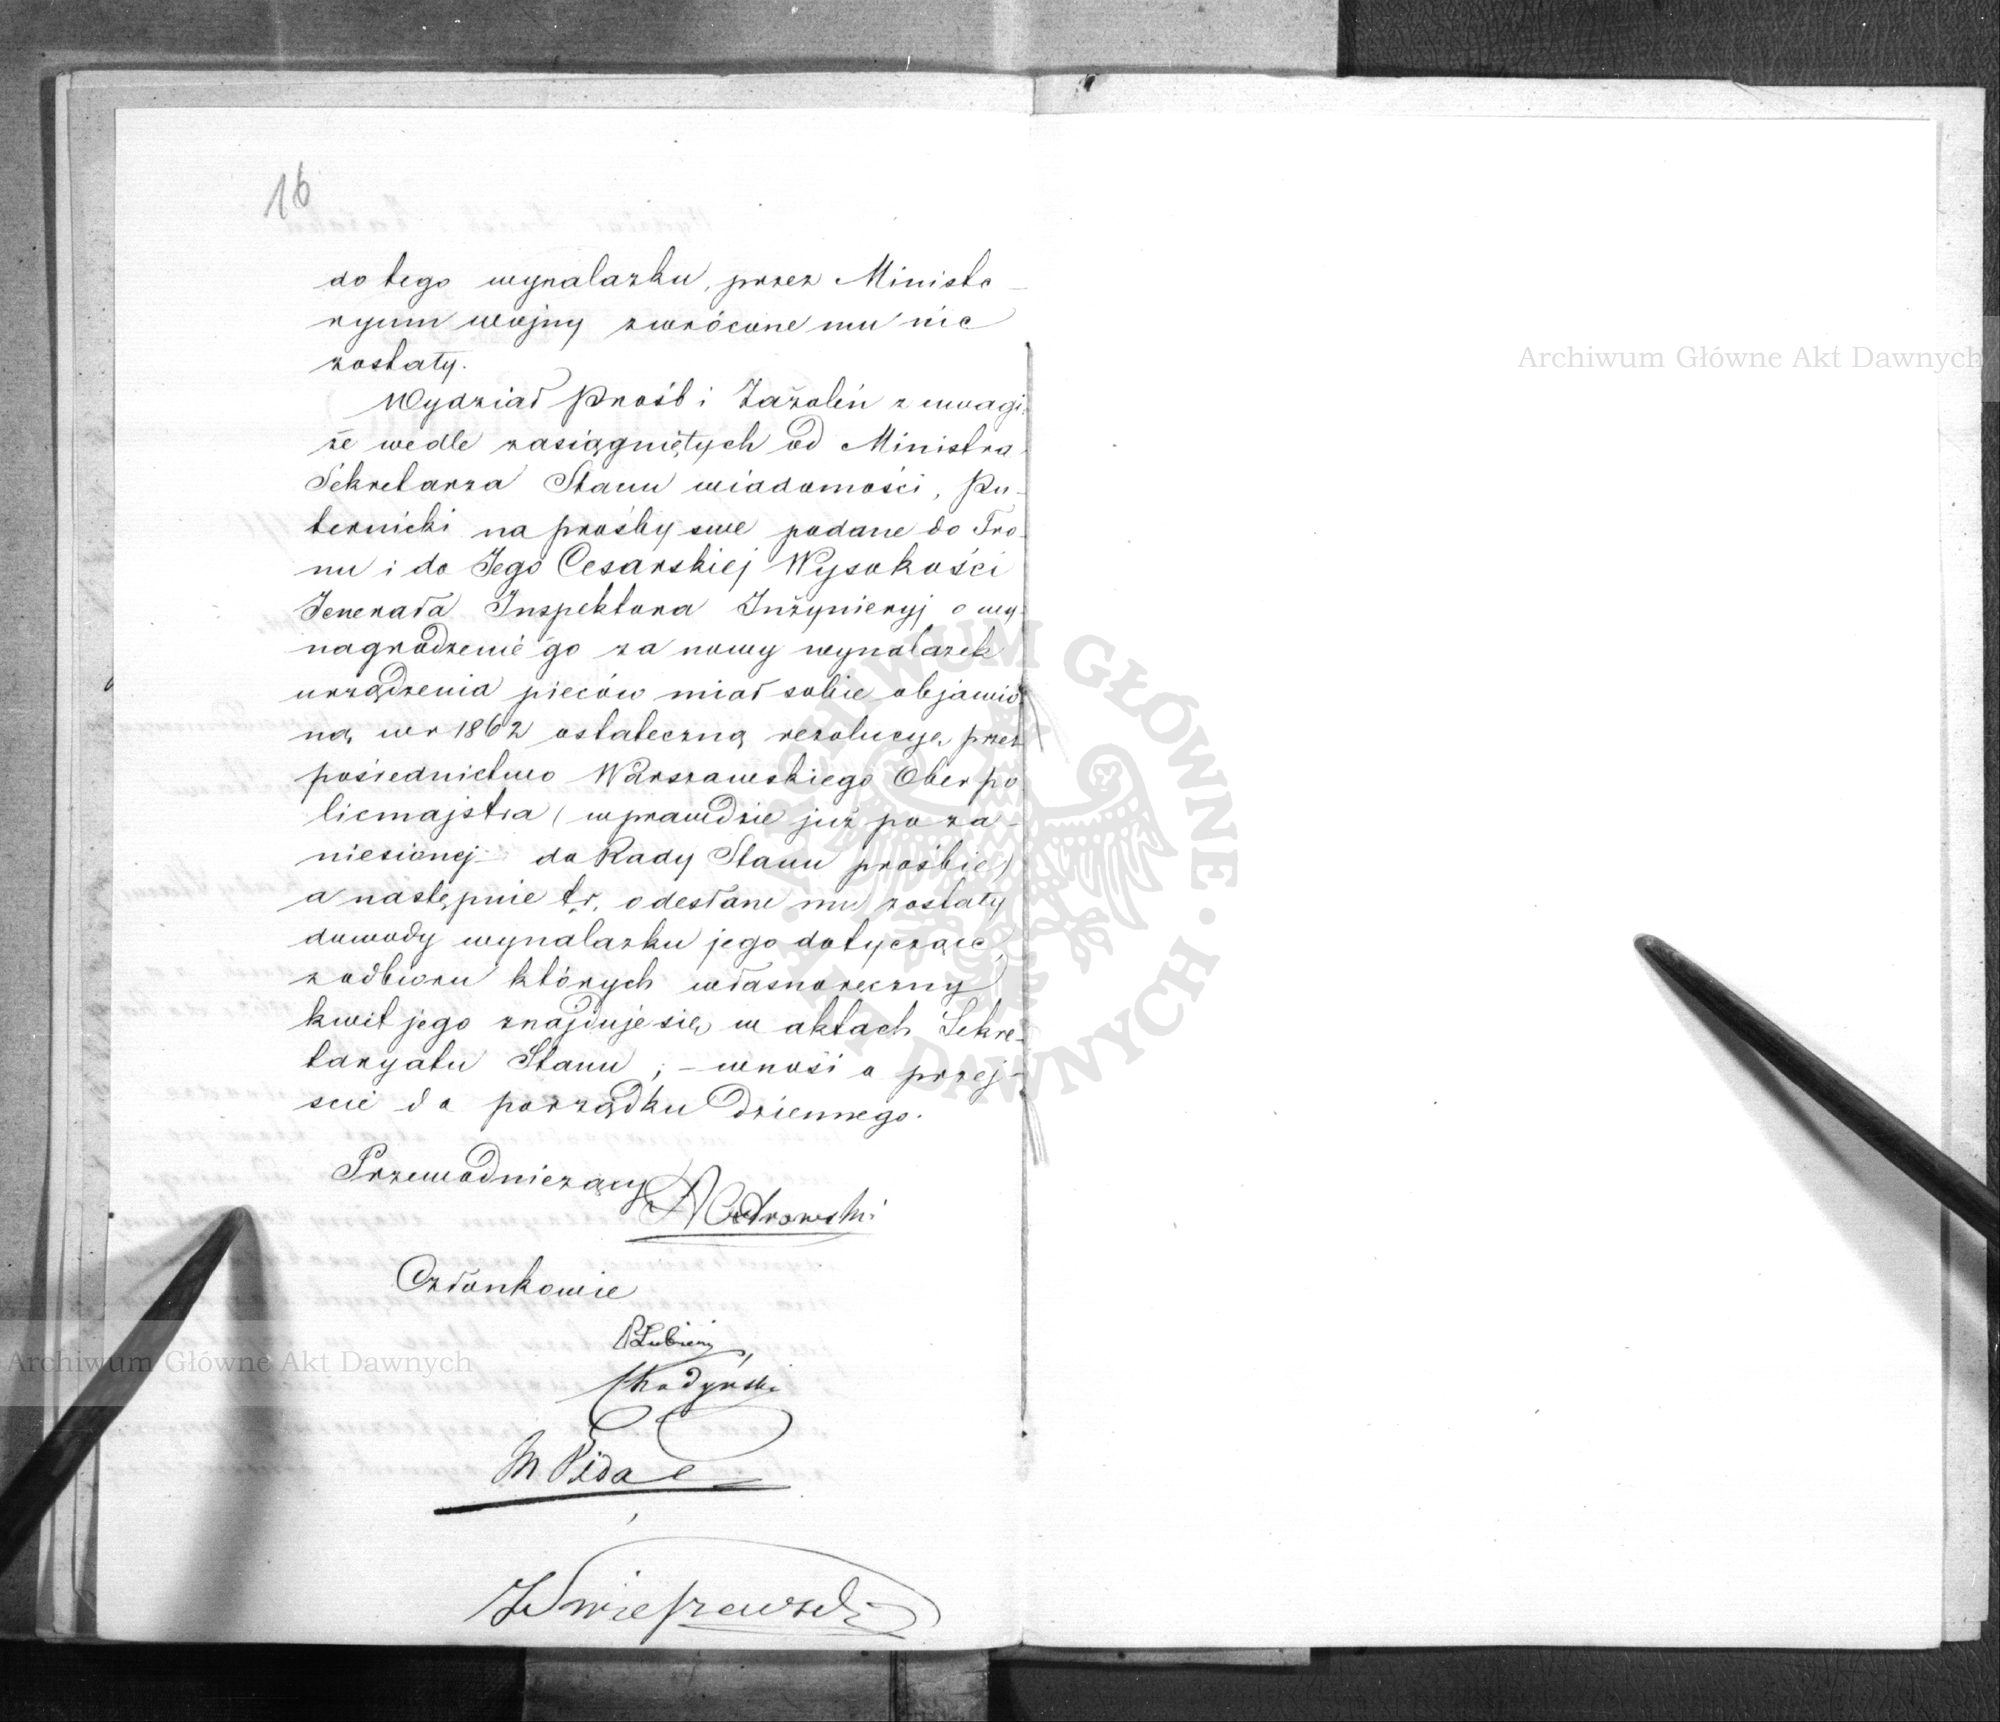 16
do tego wynalazku, przez Ministe-
ryum wojny zwrócone mu nie
zostały.
Wydział Prośb i Zażaleń z uwagi,
że wedle zasiągniętych od Ministra
Sekretarza Stanu wiadomości, Pu-
ternicki na prośby swe podane do Tro-
nu i do Jego Cesarskiej Wysokości
Jenerała Inspektora Inżynieryj o wy-
nagrodzenie go za nowy wynalazek
urządzenia pieców miał sobie objawio-
ną w r 1862 ostateczną rezolucyę, przez
pośrednictwo Warszawskiego Oberpo-
licmajstra (wprawdzie już po za-
niesionej do Rady Stanu prośbie)
a następnie t.r. odesłane mu zostały
dowody wynalazku jego dotyczące,
z odbioru których własnoręczny
kwit jego znajduje się w aktach Sekre-
taryatu Stanu; - wnosi o przej-
ście do porządku dziennego.
Przewodniczący
Członkowie
Archiwum Główne Akt Dawnych
Archiwum Główne Akt Dawnych
ARCHIWUM GŁÓWNE AKT DAWNYCH